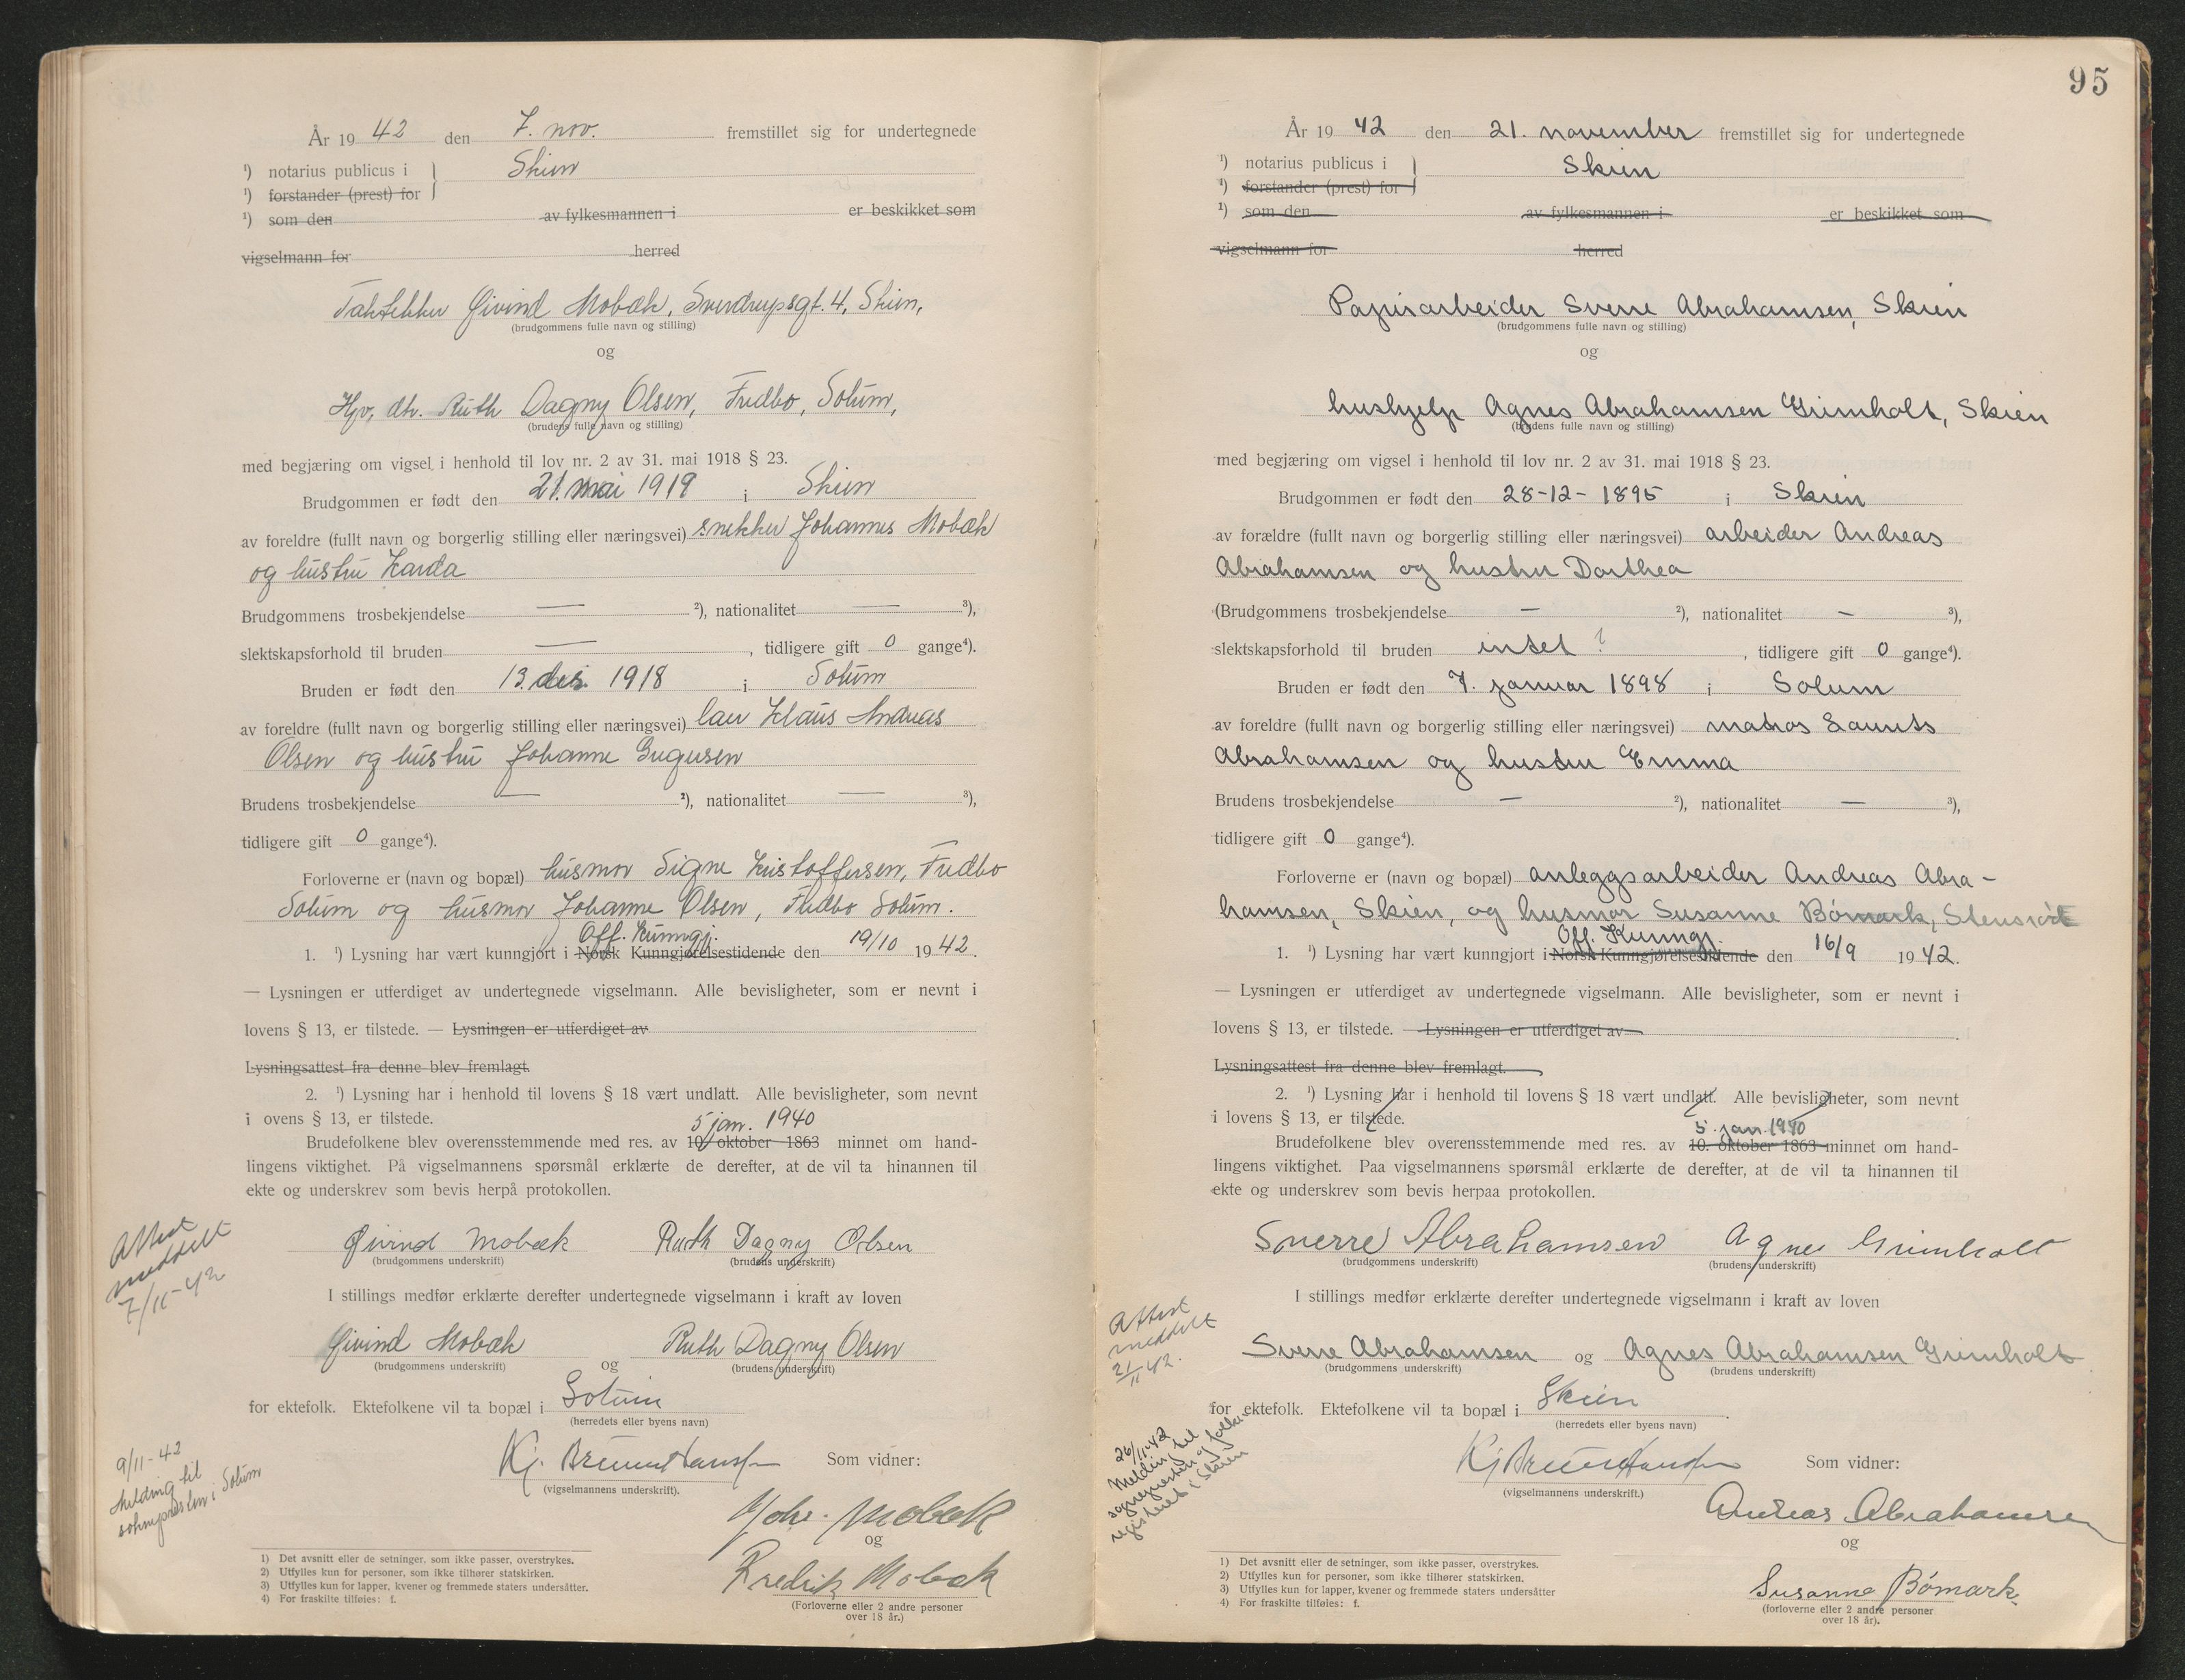 År 19 42 den 7. nov. fremstillet sig for undertegnede
¹) notarius publicus i Skien
¹) forstander (prest) for
¹) som den av fylkesmannen i er beskikket som
vigselmann for herred
Taktekker Øivind Mobæk, Sverdrupsgt. 4, Skien,
(brudgommens fulle navn og stilling)
og
Hjv. dtr. Ruth Dagny Olsen, Fredbo, Solum,
(brudens fulle navn og stilling)
med begjæring om vigsel i henhold til lov nr. 2 av 31. mai 1918 § 23.
Brudgommen er født den 21. mai 1919 i Skien
av foreldre (fullt navn og borgerlig stilling eller næringsvei) snekker Johannes Mobæk
og hustru Karda
Brudgommens trosbekjendelse — ²), nationalitet — ³),
slektskapsforhold til bruden —, tidligere gift 0 gange⁴).
Bruden er født den 13. des. 1918 i Solum
av foreldre (fullt navn og borgerlig stilling eller næringsvei) Klaus Andreas
Olsen og hustru Johanne Gregersen
Brudens trosbekjendelse — ²), nationalitet — ³),
tidligere gift 0 gange⁴).
Forloverne er (navn og bopæl) husmor Signe Kristoffersen, Fredbo
Solum og husmor Johanne Olsen, Fredbo Solum.
Off. Kunngj.
1. ¹) Lysning har vært kunngjort i Norsk Kunngjørelsestidende den 19/10 1942.
— Lysningen er utferdiget av undertegnede vigselmann. Alle bevisligheter, som er nevnt i
lovens § 13, er tilstede. — Lysningen er utferdiget av
Lysningsattest fra denne blev fremlagt.
2. ¹) Lysning har i henhold til lovens § 18 vært undlatt. Alle bevisligheter, som nevnt
i ovens § 13, er tilstede.
5 jan. 1940
Brudefolkene blev overensstemmende med res. av 10. oktober 1863 minnet om hand-
lingens viktighet. På vigselmannens spørsmål erklærte de derefter, at de vil ta hinannen til
ekte og underskrev som bevis herpå protokollen.
Attest
meddelt
7/11-42
Øivind Mobæk Ruth Dagny Olsen
(brudgommens underskrift) (brudens underskrift)
I stillings medfør erklærte derefter undertegnede vigselmann i kraft av loven
Øivind Mobæk og Ruth Dagny Olsen
(brudgommens underskrift) (brudens underskrift)
for ektefolk. Ektefolkene vil ta bopæl i Solum
(herredets eller byens navn)
9/11-42
Melding til
soknepresten i Solum
Kj. Bruun Hansen Som vidner:
(vigselmannens underskrift).
Johs. Mobæk
og
Fredrik Mobæk
(Forloverne eller 2 andre personer
over 18 år.)
1) Det avsnitt eller de setninger, som ikke passer, overstrykes.
2) Utfylles kun for personer, som ikke tilhører statskirken.
3) Utfylles kun for lapper, kvener og fremmede staters undersåtter.
4) For fraskilte tilføies: f.
95
År 19 42 den 21. november fremstillet sig for undertegnede
¹) notarius publicus i Skien
¹) forstander (prest) for
¹) som den av fylkesmannen i er beskikket som
vigselmann for herred
Papirarbeider Sverre Abrahamsen, Skien
(brudgommens fulle navn og stilling)
og
hushjelp Agnes Abrahamsen Grimholt, Skien
(brudens fulle navn og stilling)
med begjæring om vigsel i henhold til lov nr. 2 av 31. mai 1918 § 23.
Brudgommen er født den 28-12-1895 i Skien
av forældre (fullt navn og borgerlig stilling eller næringsvei) arbeider Andreas
Abrahamsen og hustru Dorthea
(Brudgommens trosbekjendelse — ²), nationalitet — ³),
slektskapsforhold til bruden intet ?, tidligere gift 0 gange⁴).
Bruden er født den 7. januar 1898 i Solum
av foreldre (fullt navn og borgerlig stilling eller næringsvei) matros Laurits
Abrahamsen og hustru Emma
Brudens trosbekjendelse — ²), nationalitet — ³),
tidligere gift 0 gange⁴).
Forloverne er (navn og bopæl) anleggsarbeider Andreas Abra-
hamsen, Skien, og husmor Susanne Bömark, Stensrödt
Off. Kunngj.
1. ¹) Lysning har vært kunngjort i Norsk Kunngjørelsestidende den 16/9 1942.
— Lysningen er utferdiget av undertegnede vigselmann. Alle bevisligheter, som er nevnt i
lovens § 13, er tilstede. — Lysningen er utferdiget av
Lysningsattest fra denne blev fremlagt.
2. ¹) Lysning har i henhold til lovens § 18 vært undlatt. Alle bevisligheter, som nevnt
i lovens § 13, er tilstede.
5. jan. 1940
Brudefolkene blev overensstemmende med res. av 10. oktober 1863 minnet om hand-
lingens viktighet. Paa vigselmannens spørsmål erklærte de derefter, at de vil ta hinannen til
ekte og underskrev som bevis herpaa protokollen.
Sverre Abrahamsen Agnes Grimholt
(brudgommens underskrift) (brudens underskrift)
I stillings medfør erklærte derefter undertegnede vigselmann i kraft av loven
Attest
meddelt
21/11 42.
Sverre Abrahamsen og Agnes Abrahamsen Grimholt
(brudgommens underskrift) (brudens underskrift)
for ektefolk. Ektefolkene vil ta bopæl i Skien
(herredets eller byens navn)
26/11-42
Melding til
sognepresten og folke-
registeret i Skien
Kj Bruun Hansen Som vidner:
(vigselmannens underskrift.)
Andreas Abrahamsen
og
Susanne Bömark.
(forloverne eller 2 andre personer
over 18 år).
1) Det avsnitt eller de setninger, som ikke passer, overstrykes.
2) Utfylles kun for personer, som ikke tilhører statskirken.
3) Utfylles kun for lapper, kvener og fremmede staters undersåtter
4) For fraskilte tilføies: f.